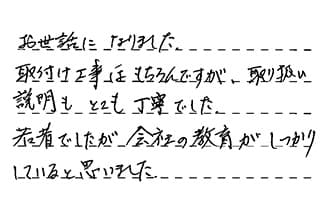 お世話になりました。
取付け工事はもちろんですが、取り扱い
説明もとても丁寧でした。
若者でしたが会社の教育がしっかり
していると思いました。